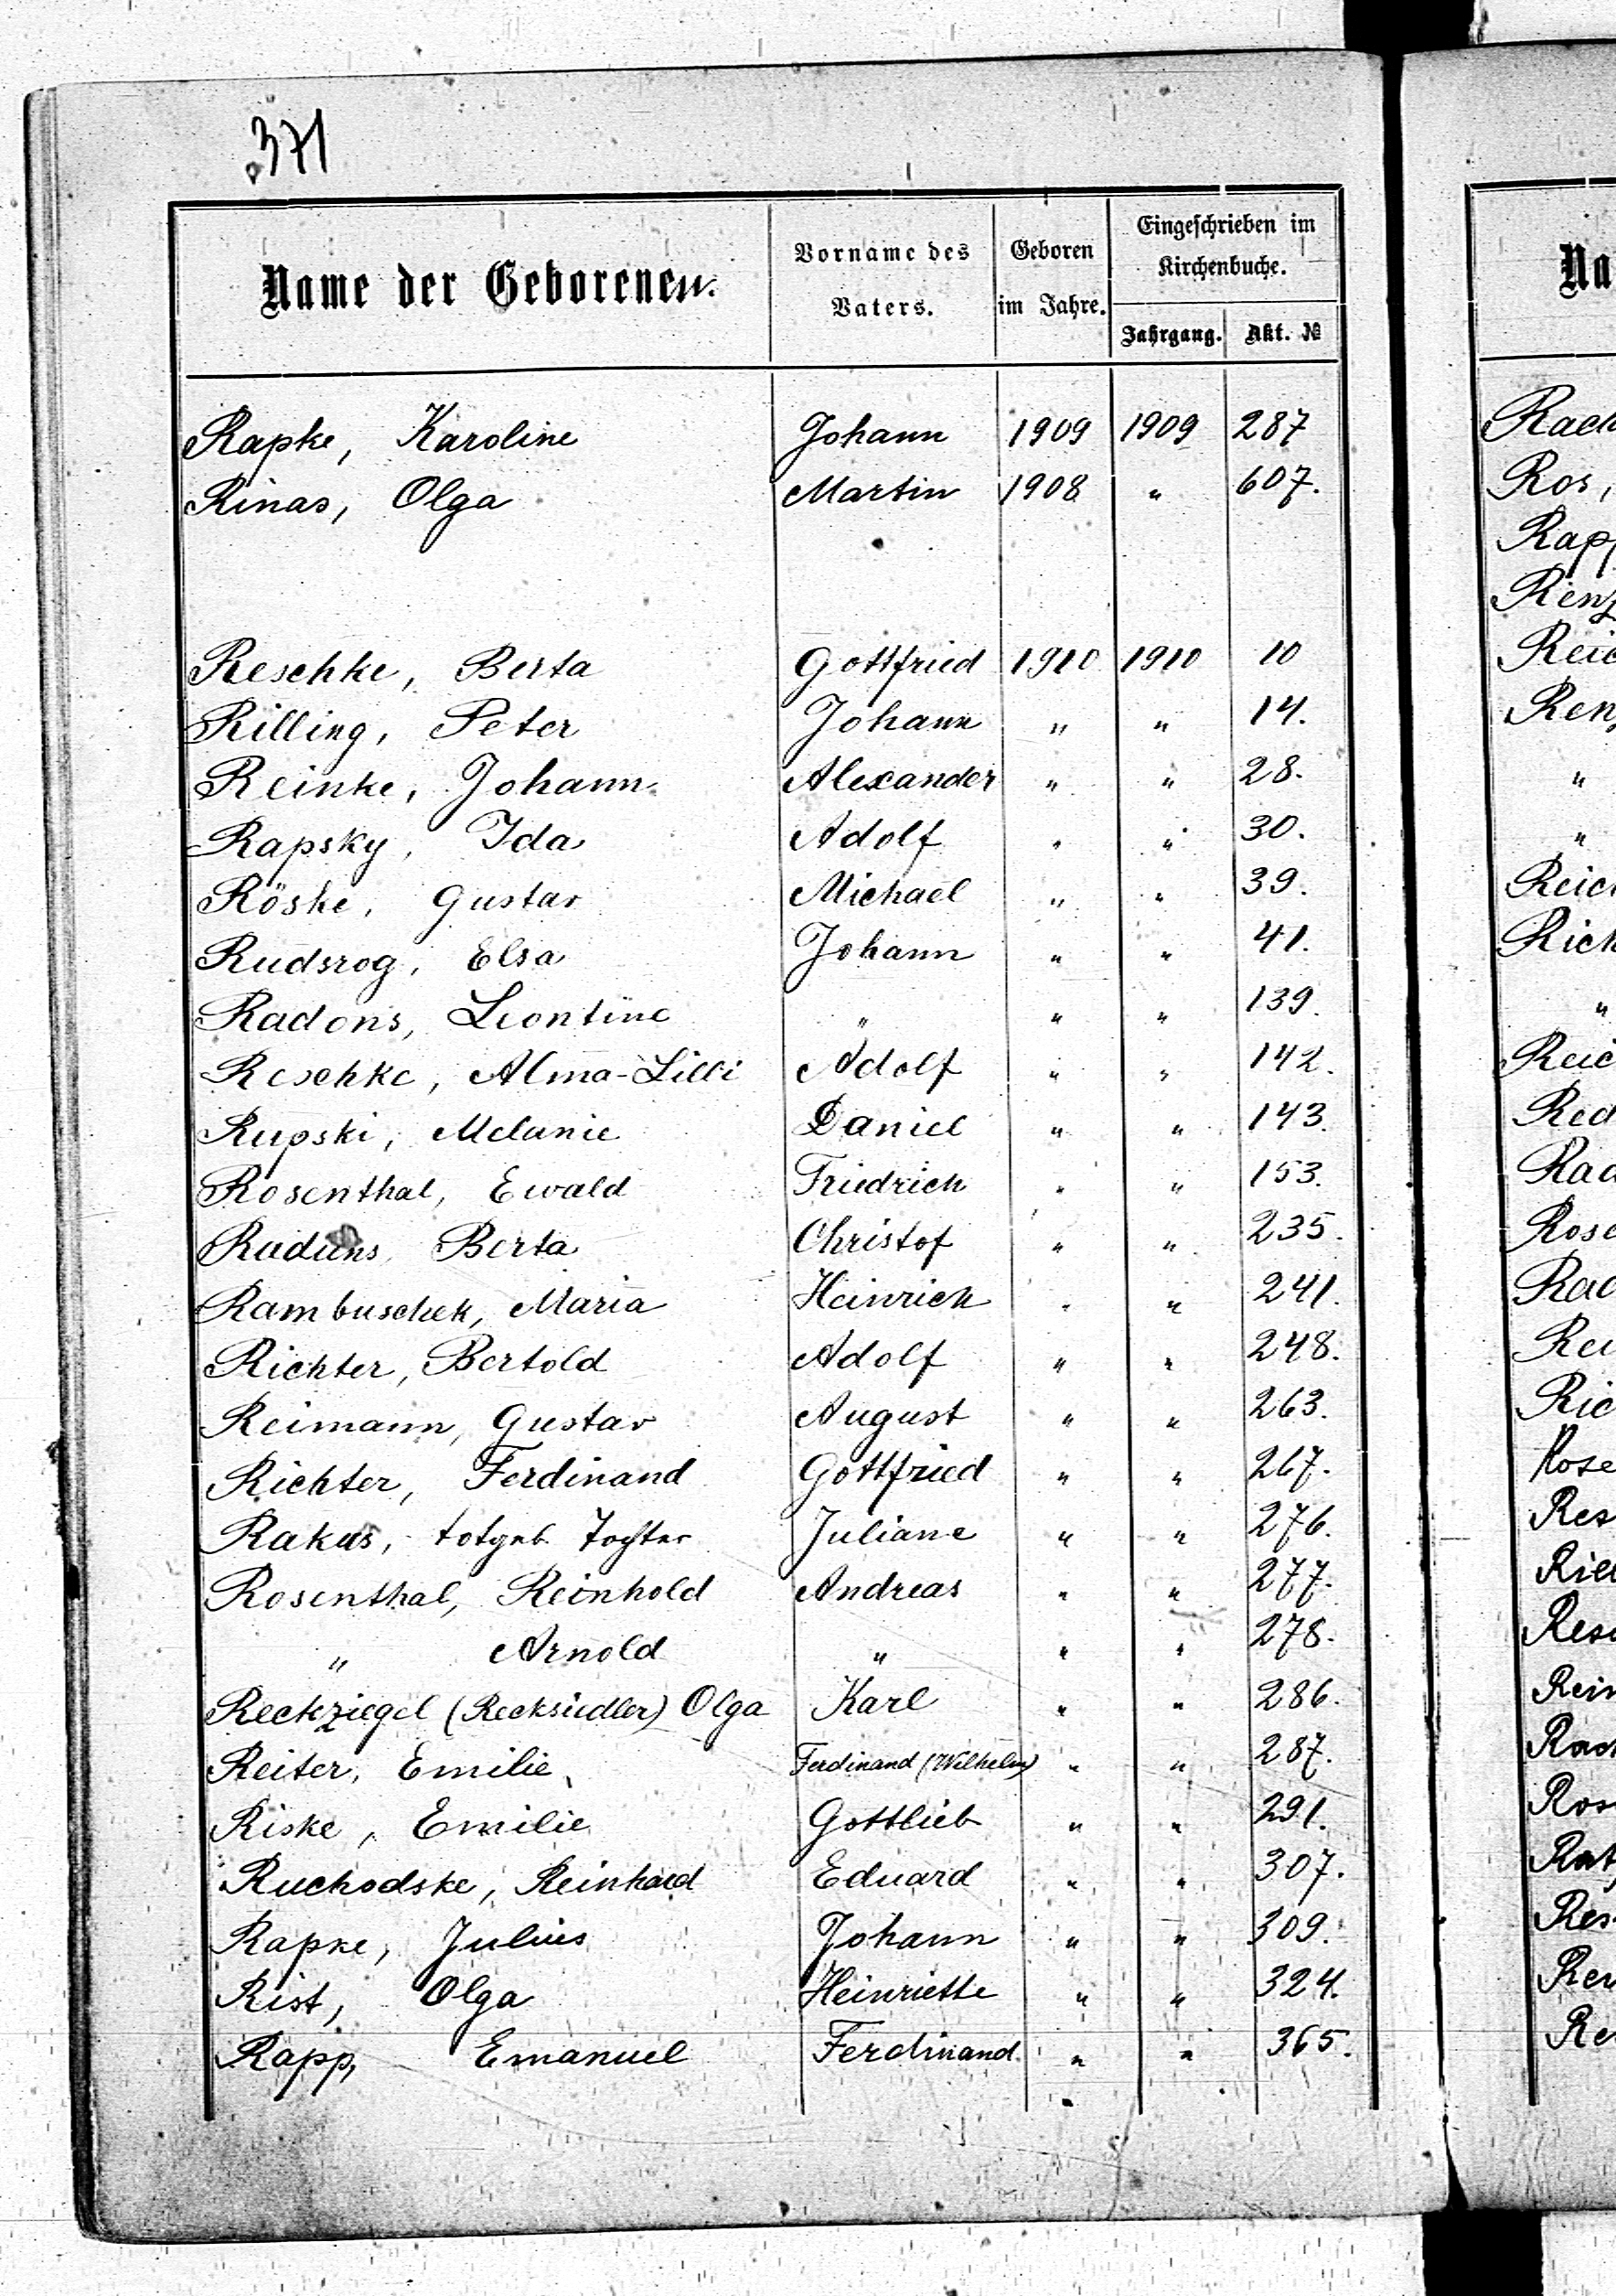 371
Name der Geborenen.
Vorname des Vaters.
Geboren im Jahre.
Eingeschrieben im Kirchenbuche.
Jahrgang. Akt. №
Rapke, Karoline Johann 1909 1909 287
Rinas, Olga Martin 1908 " 607.
Reschke, Berta Gottfried 1910 1910 10
Rilling, Peter Johann " " 14.
Reinke, Johann Alexander " " 28.
Rapsky, Ida Adolf " " 30.
Röske, Gustav Michael " " 39.
Rudsrog, Elsa Johann " " 41.
Radons, Leontine " " " 139.
Reschke, Alma-Lilli Adolf " " 142.
Rupski, Melanie Daniel " " 143.
Rosenthal, Ewald Friedrich " " 153.
Raduns, Berta Christof " " 235.
Rambuschek, Maria Heinrich " " 241.
Richter, Bertold Adolf " " 248.
Reimann, Gustav August " " 263.
Richter, Ferdinand Gottfried " " 267.
Rakus, totgeb. Tochter Juliane " " 276.
Rosenthal, Reinhold Andreas " " 277.
" Arnold " " " 278.
Reckziegel (Recksiedler) Olga Karl " " 286.
Reiter, Emilie Ferdinand (Wilhelm) " " 287.
Riske, Emilie Gottlieb " " 291.
Ruchodske, Reinhard Eduard " " 307.
Rapke, Julius Johann " " 309.
Rist, Olga Heinriette " " 324.
Rapp, Emanuel Ferdinand " " 365.
Na
Rach
Ros,
Rapp
Renz
Reic
Renz
"
"
Reic
Rich
"
Reic
Red
Rad
Rose
Rad
Rei
Ric
Rose
Res
Resc
Rein
Ros
Rat
Res